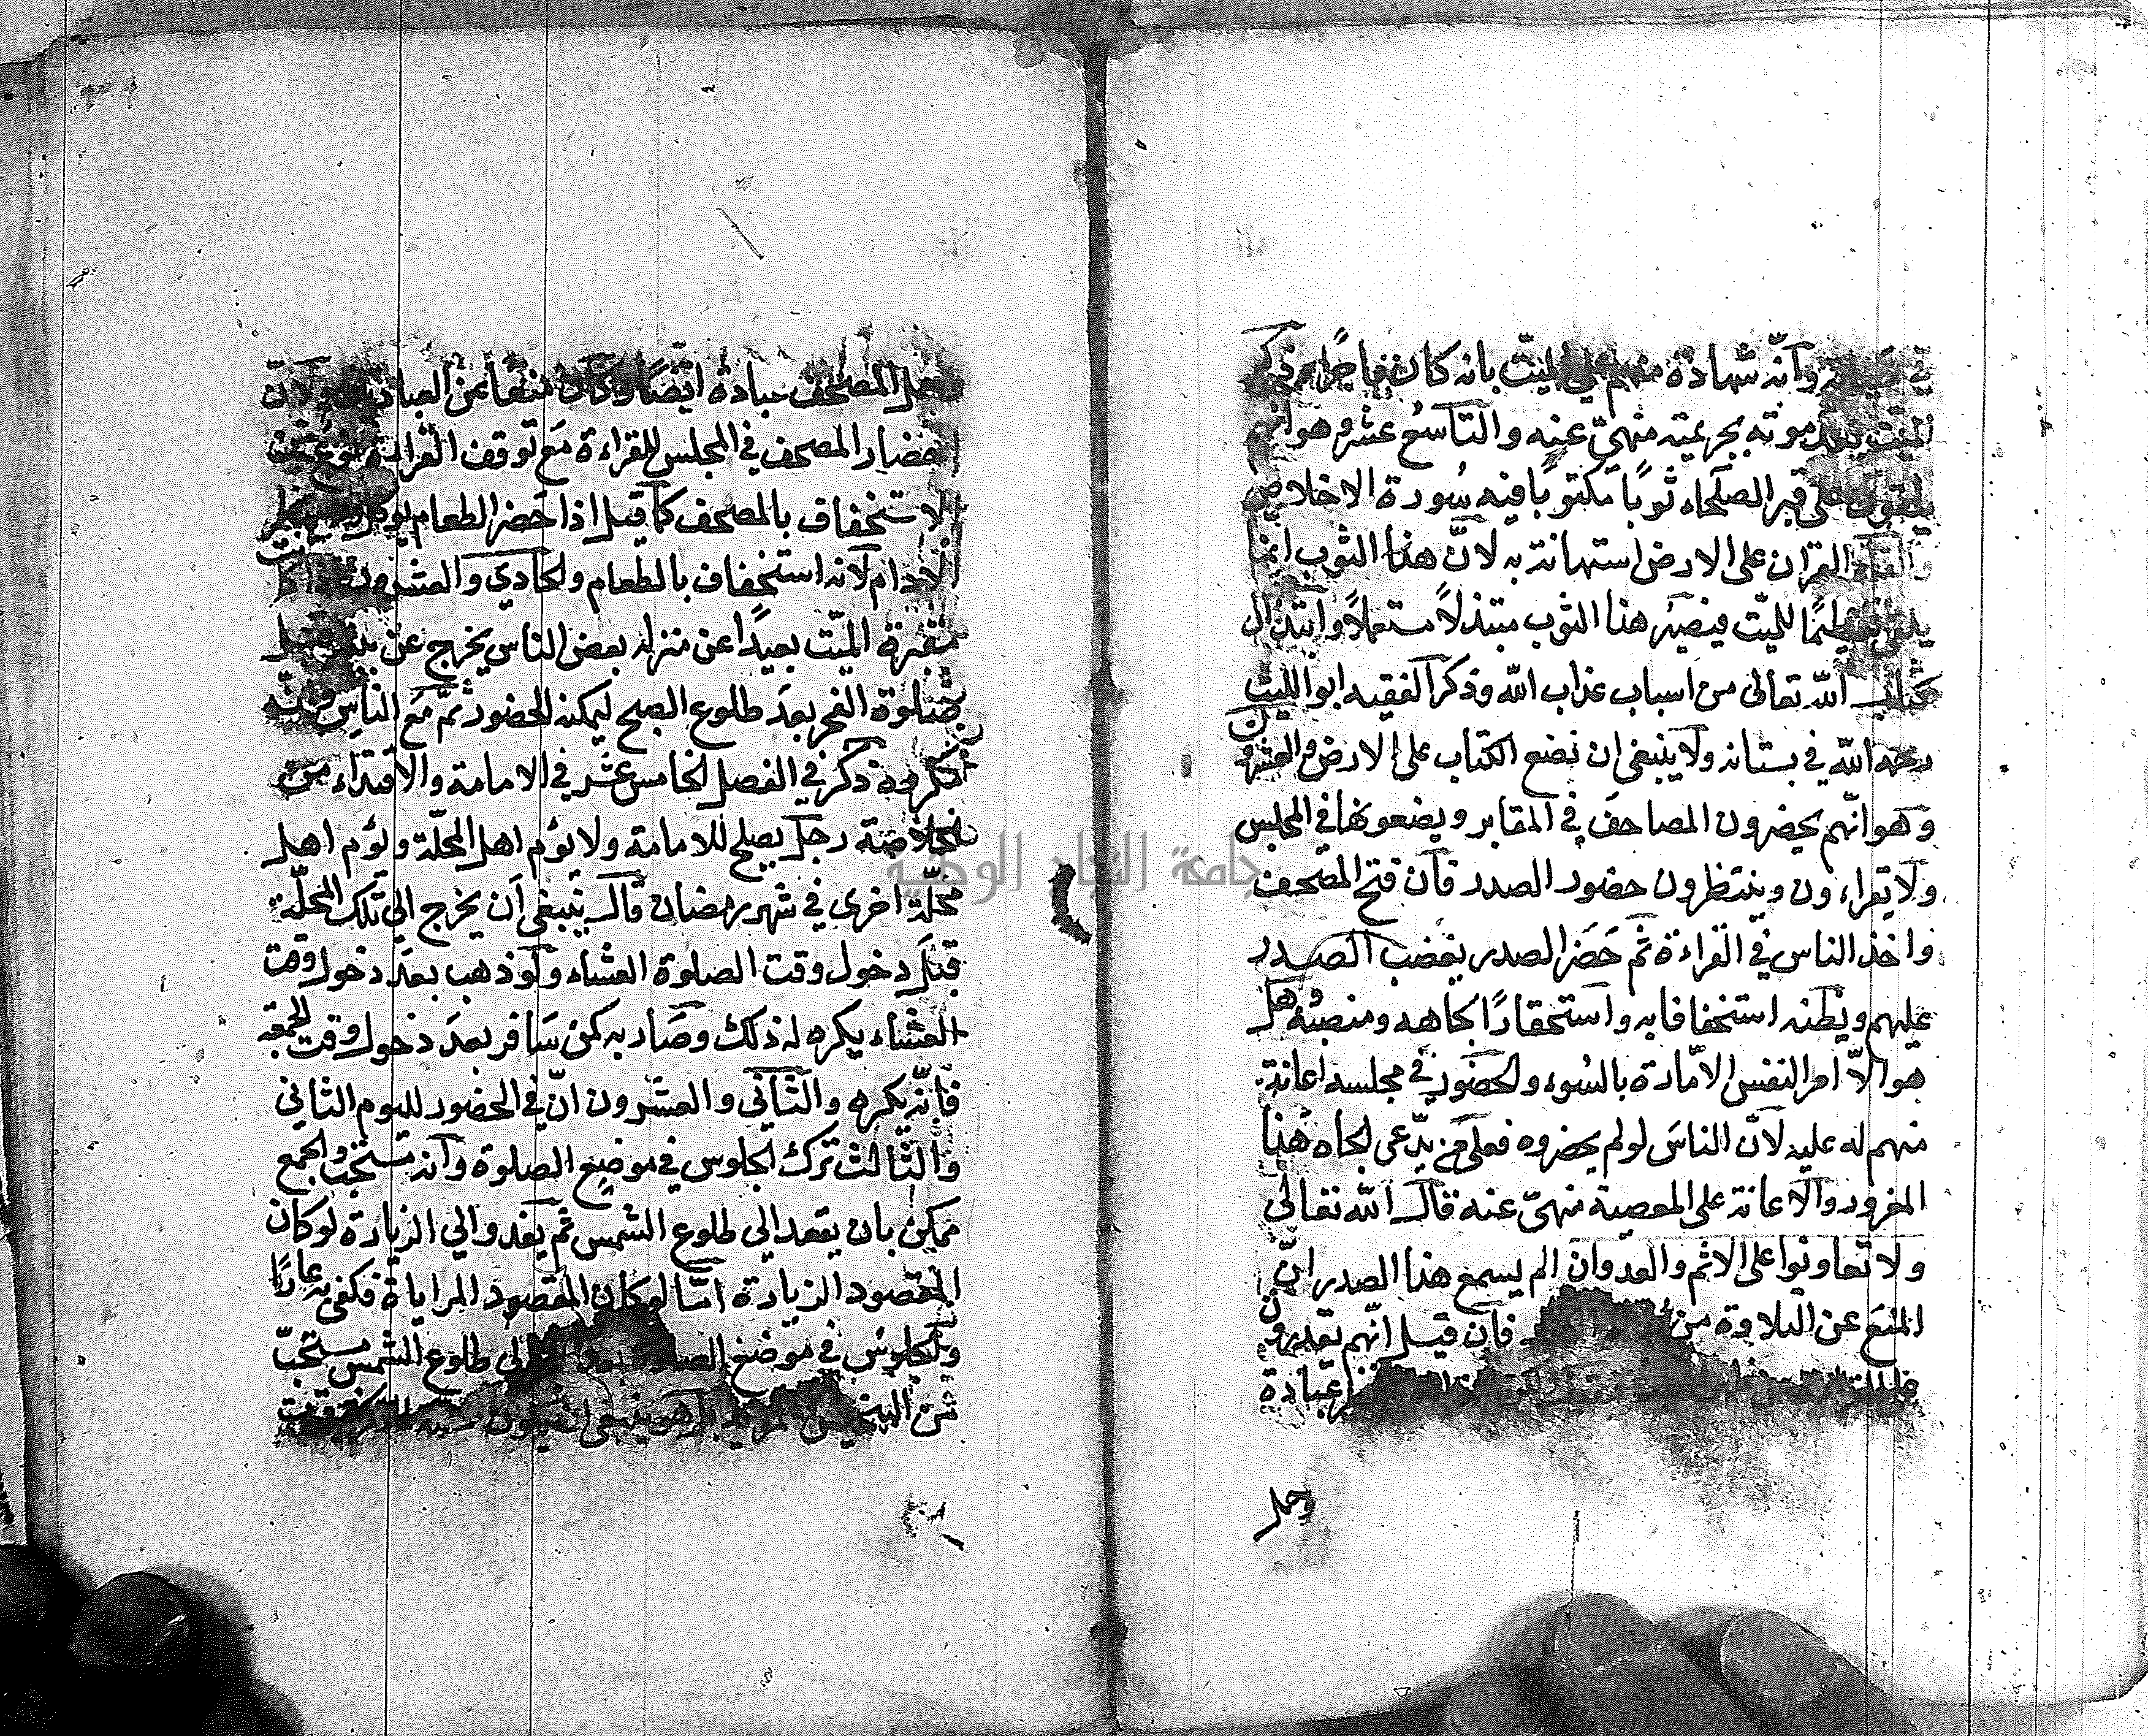 وانه شهادة منهم على الميت بانه كان فاجرا وذكر
الميت بعد موته بجريمته منهيّ عنه والتاسع عشر وهو انهم
يلقون على قبر الصلحاء ثوبًا مكتوبًا فيه سُورة الاخلاص
والقاء القران على الارض استهانة به لانّ هذا الثوب انما
يلقى تعظيمًا للميّت فيصيرُ هذا الثوب مبتذلاً مستعملاً وابتذال
كتاب الله تعالى من اسباب عذاب الله وذكر الفقيه ابو الليث
رحمه الله في بستانه ولا ينبغي ان نضع الكتاب على الارض والعشرون
وهو انّهم يحضرون المصاحفَ في المقابر ويضعونها في المجلس
ولا يقراءون وينتظرون حضور الصدر فان فتح المصحف
واخذ الناس في القراءة ثم حَضَر الصدر يغضب الصدر
عليهم ويظنه استخفافا به واستحقارًا بجاهه ومنصبُه هل
هو الاّ امر النفس الامّارة بالسُوء والحضور في مجلسه اعانة
منهم له عليه لانّ الناسَ لو لم يحضروه فعلى من يدّعى الجاه هذا
المغرور والاعانة على المعصية منهىّ عنه قال الله تعالى
ولا تعاونوا على الاثم والعدوان الم يسمع هذا الصدر انّ
المنعَ عن التلاوة من فان قيل انّهم يقدرون
عبادة
وحمل
وحمل المصحف عبادة ايضًا وكان منعًا عن العبادة ولانّ
احضار المصحف في المجلس للقراءة مَع توقف القراءة نوع من
الاستخفاف بالمصحف كما قيل اذا حَضر الطعام
الادام لانه استخفاف بالطعام والحادي والعشرون
مقبرة الميّت بعيدًا عن منزله بعض الناس يخرج عن
بصلوة الفجر بعدَ طلوع الصبح ليمكنه الحضور ثمّ مَع الناس وانّه
مكروه ذكر في الفصل الخامس عشر في الامامة والاقتداء من
الخلاصة رجل يصلح للامامة ولا يؤم اهل المحلّة ويؤم اهل
محلّة اخرى في شهر رمضان قال ينبغي اَن يخرج الي تلك المحلّة
قبلَ دخول وقت الصلوة العشاء ولو ذهب بعدَ دخول وقت
العشاء يكره له ذلك وصَار به كمن سَافر بعدَ دخول وقت الجمعة
فانّه يكره والثاني والعشرون انّ في الحضور لليوم الثاني
والثالث ترك الجلوس في موضِع الصلوة وانه مستحبّ والجمع
ممكن بان يقعد الى طلوع الشمس ثم يغدوا الي الزيارة لو كان
المقصود الزيارة امّا لو كان المقصود المراياة فكفى به عارًا
والجلوسُ في موضع الى طلوع الشمس مستحبّ
من ينبغي ان يكون